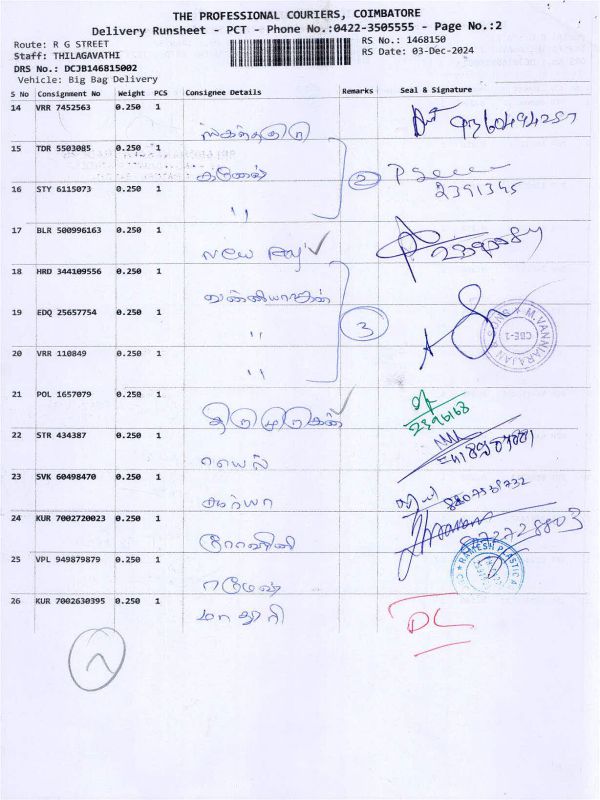 THE PROFESSIONAL COURIERS, COIMBATORE
Delivery Runsheet - PCT - Phone No.:0422-3505555 - Page No.:2
Route: R G STREET
RS No.: 1468150
Staff: THILAGAVATHI
RS Date: 03-Dec-2024
DRS No.: DCJB146815002
Vehicle: Big Bag Delivery
S No Consignment No Weight PCS Consignee Details Remarks Seal & Signature
14 VRR 7452563 0.250 1
15 TDR 5503085 0.250 1
2
16 STY 6115073 0.250 1 " 2391345
17 BLR 500996163 0.250 1
18 HRD 344109556 0.250 1
19 EDQ 25657754 0.250 1 " 3 M.VANNIARAJAN & SONS CBE-1
20 VRR 110849 0.250 1 "
21 POL 1657079 0.250 1 திருமுருகன் 2396168
22 STR 434387 0.250 1
23 SVK 60498470 0.250 1 சூர்யா
24 KUR 7002720023 0.250 1
25 VPL 949879879 0.250 1 ரமேஷ் RAMESH PLASTIC
26 KUR 7002630395 0.250 1 மாதூரி DL